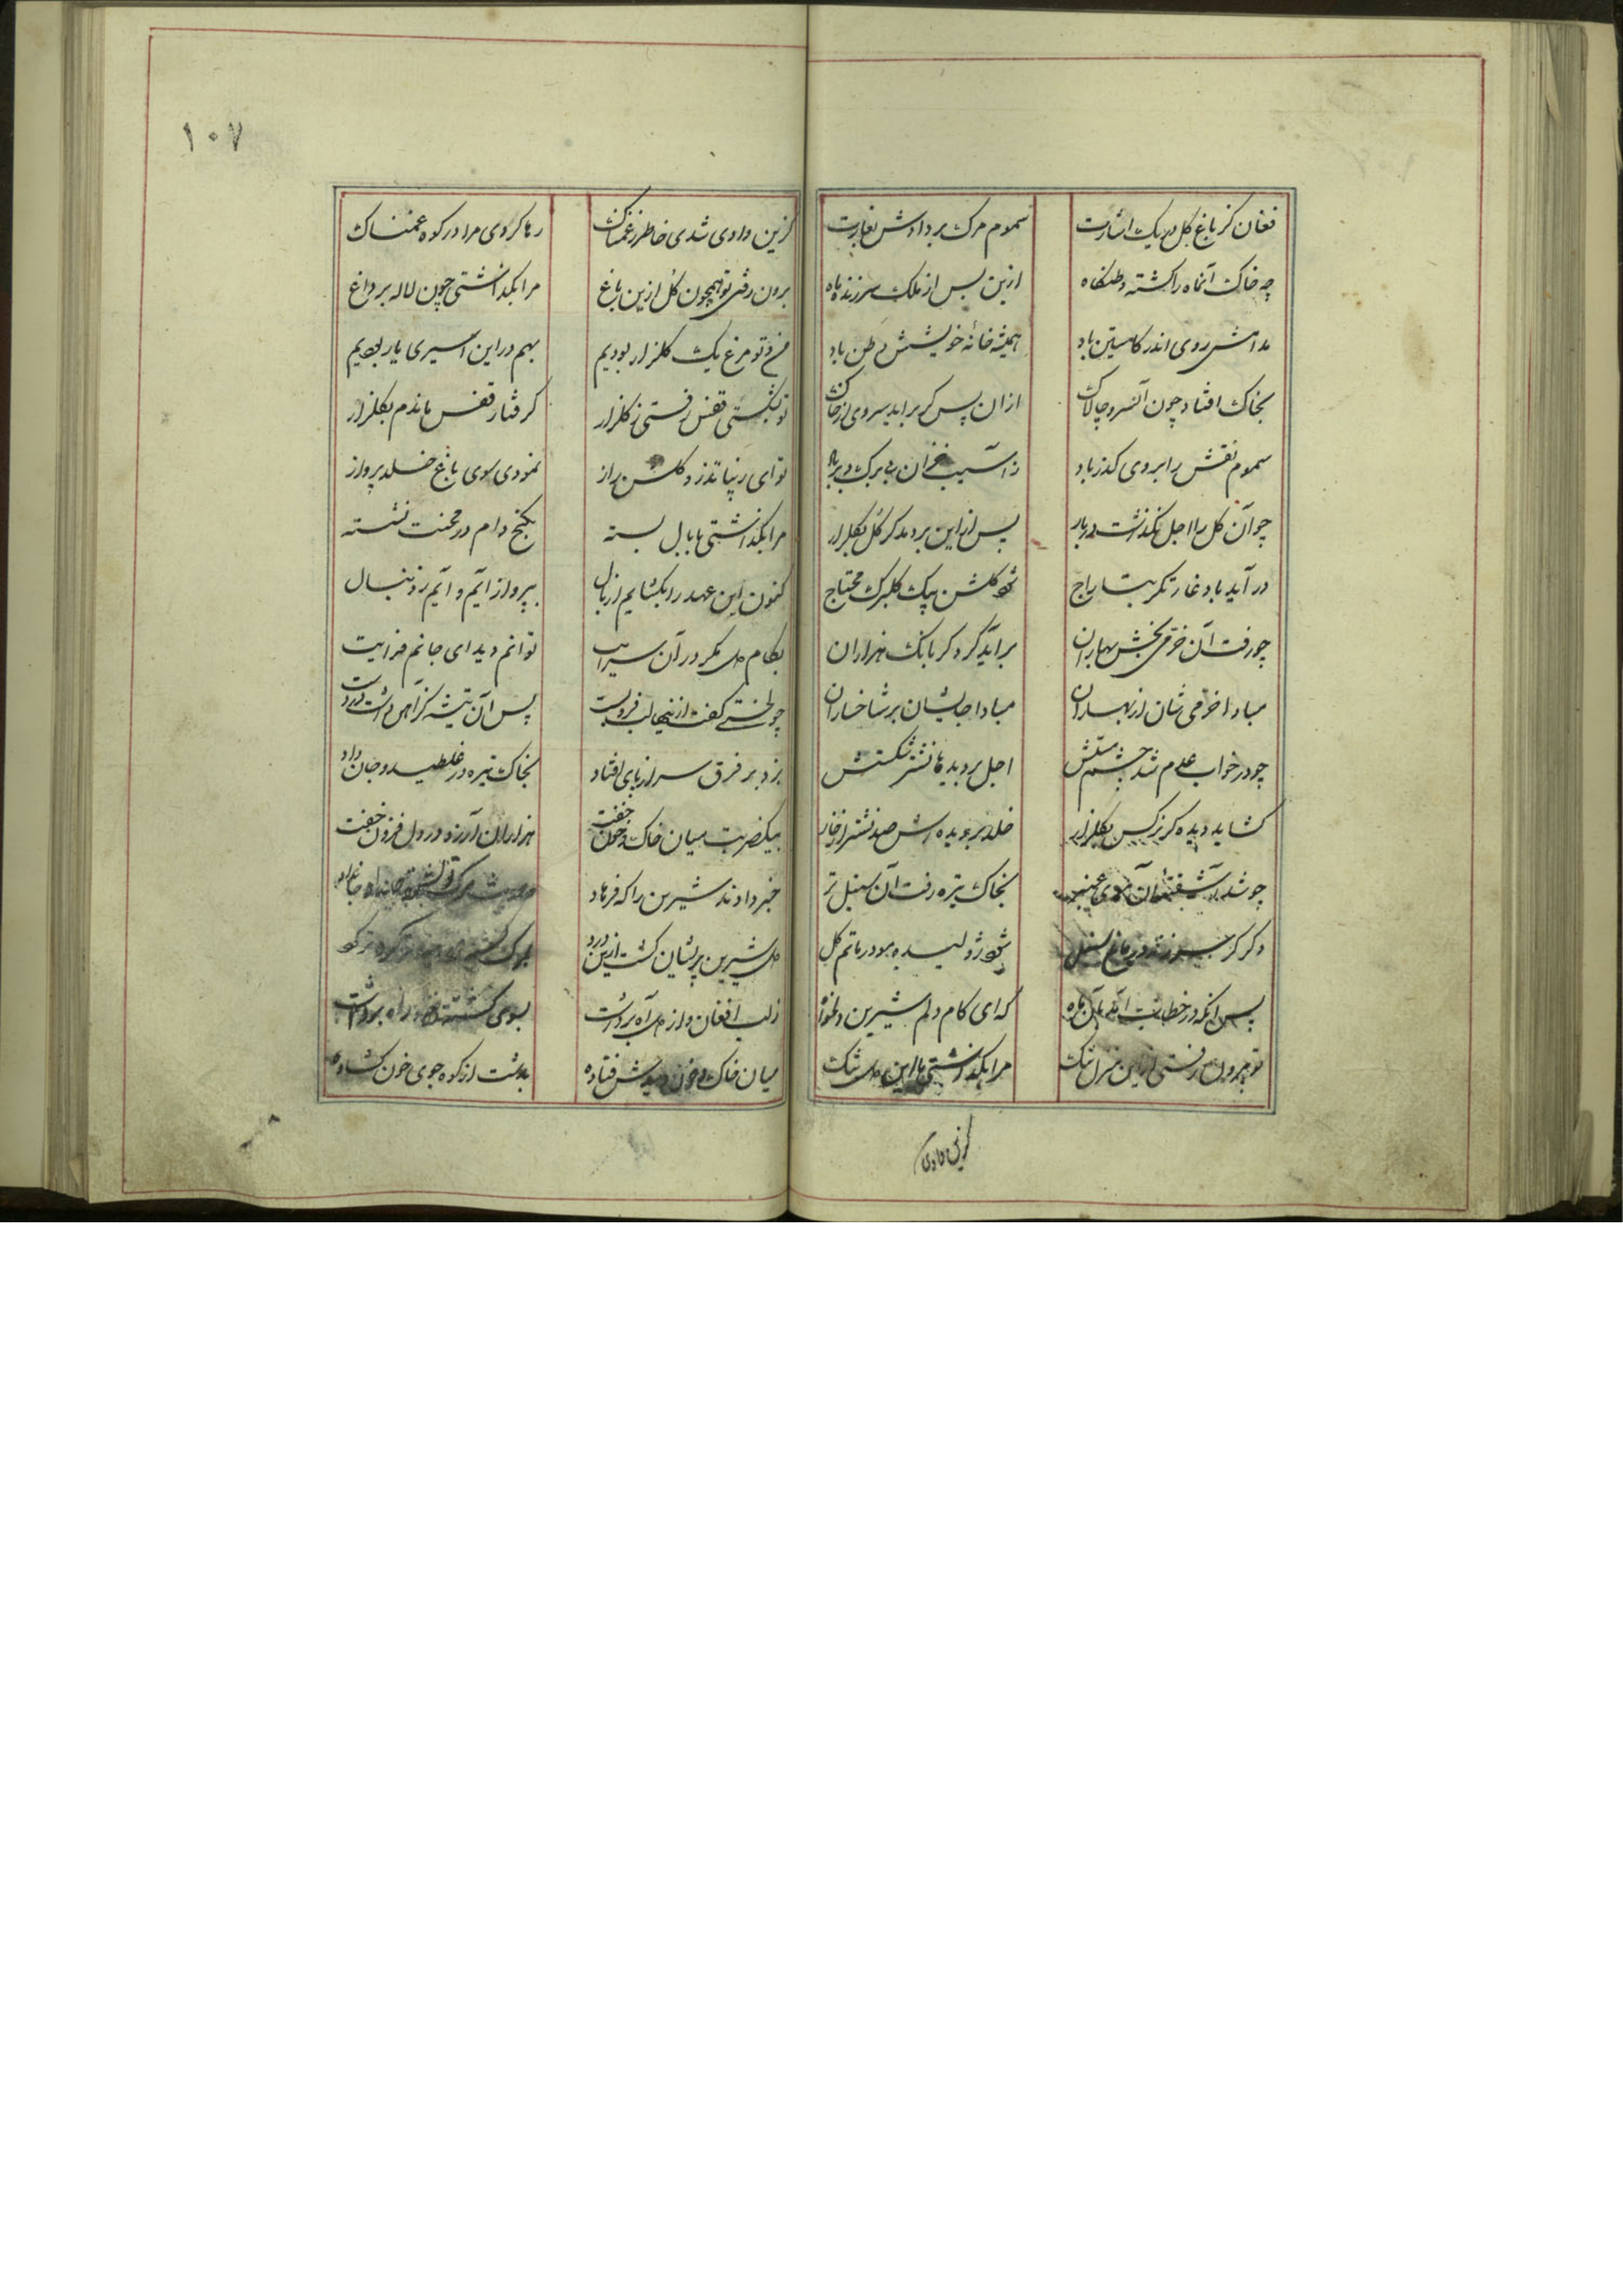 فغان کز باغ گل در یک اشارت
سموم مرگ بردادش بغارت
چه خاک آنماه را گشته وطنگاه
ازین پس از فلک سر زند ماه
مدامش روی اندر کاستن باد
همیشه خانهٔ خویشش وطن باد
بخاک افتاد چون آنسرو چالاک
ازان پس کر براید سروی از خاک
سموم نقش را بروی گذر باد
ز آسیب خزان بی برک و بر باد
چو آن گل را اجل نگذاشت در بار
پس ازاین بردمد کر گل بگلزار
در آید باد غارتگر بتاراج
شود گلشن بیک گلبرک محتاج
چو رفت آن خرمی بخش بهاران
برآید گرد کر بانک هزاران
مبادا خرمی شان از بهاران
مبادا جایشان بر شاخساران
چو در خواب عدم شد چشم مستش
اجل بر دیده‌ها نشتر شکستش
گشاید دیده کر نرگس بگلزار
خلد بر دیده‌اش صد نشتر از خار
چو شد آشفته آن موی عنبر
بخاک تیره رفت آن سنبل تر
دکر کر سر زند در باغ سنبل
شود ژولیده مو در ماتم گل
پس آنکه در خطاب آمد بآن ماه
که ای کام دلم شیرین دلخواه
تو بیرون رفتی ازین منزل تنگ
مرا بگذاشتی با این دل تنگ
گزین وادی
۱۰۷
گزین وادی شدی خاطر ز غمناک
رها کردی مرا در کوه غمناک
برون رفتی تو همچون گل ازین باغ
مرا بگذاشتی چون لاله بر داغ
من و تو مرغ یک گلزار بودیم
بهم در این اسیری یار بودیم
تو بشکستی قفس رفتی ز گلزار
گرفتار قفس ماندم بگلزار
تو ای زیبا تذرو گلشن راز
نمودی سوی باغ خلد پرواز
مرا بگذاشتی با بال بسته
بکنج دام در محنت نشسته
کنون این عهد را بگشایم از بال
بپرواز آیم و آیم ز دنبال
بکام دل مگر در آن سرایت
توانم دید ای جانم فدایت
چو لختی گفت ازینها لب فروبست
پس آن تیشه کز آهن داشت در دست
بزد بر فرق سر از پای افتاد
بخاک تیره در غلطید و جان داد
بیکضربت میان خاک و خون خفت
هزاران آرزو در دل فزون خفت
خبر دادند شیرین را که فرهاد
دل شیرین پریشان گشت ازین درد
ز لب افغان و از دل آه برداشت
بسوی کشته خود راه برداشت
میان خاک و خون دیدش فتاده
بدشت از کوه جوی خون گشاده